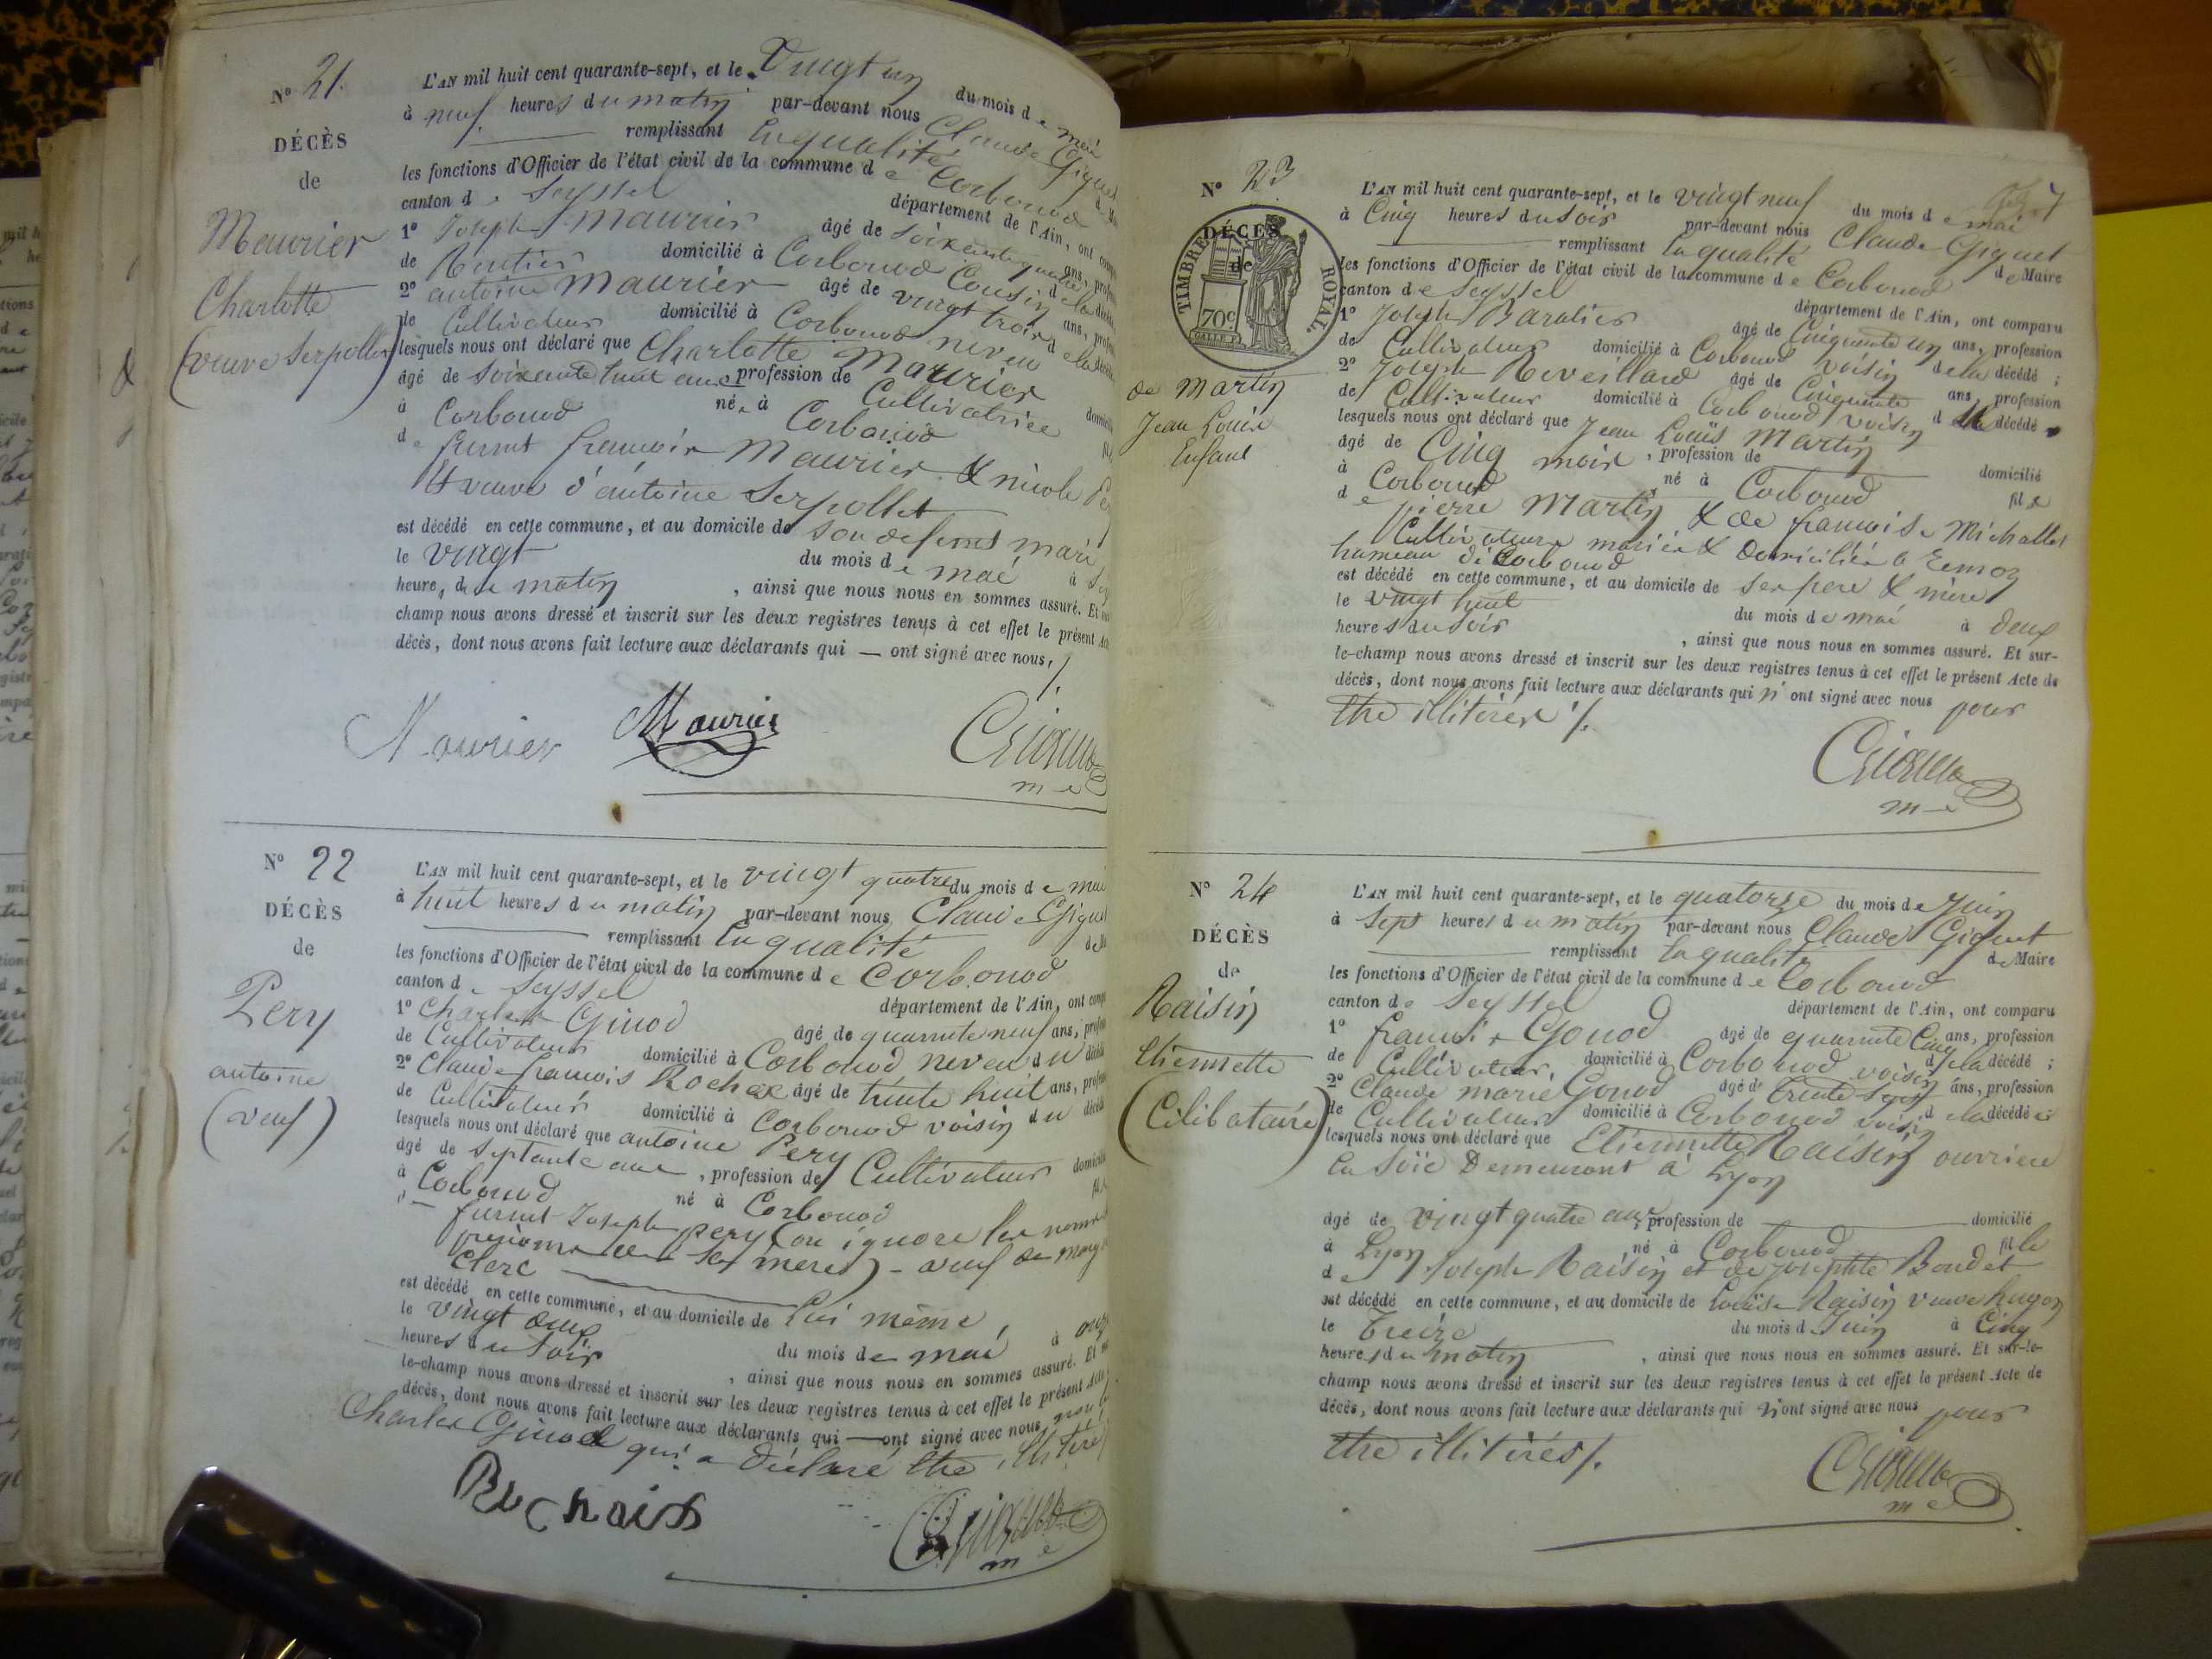 N° 21.
DÉCÈS
de
Maurier
Charlotte
(veuve Serpollet)
L'AN mil huit cent quarante-sept, et le Vingt un du mois de mai
à neuf heures du matin par-devant nous Claude Giguet
remplissant En qualité de
les fonctions d'Officier de l'état civil de la commune de Corbonod
canton de Seyssel département de l'Ain, ont
1° Joseph Maurier âgé de soixante quatre ans,
de Rentier domicilié à Corbonod Cousin de la
2° antoine Maurier âgé de vingt trois ans,
de Cultivateur domicilié à Corbonod neveu de la
lesquels nous ont déclaré que Charlotte Maurier
âgé de soixante huit ans profession de Cultivatrice
à Corbonod née à Corbonod
de furent francois Maurier & nicole
Et veuve d'antoine Serpollet
est décédé en cette commune, et au domicile de son defunt mari
le vingt du mois de mai à
heures du matin, ainsi que nous nous en sommes assuré. Et
champ nous avons dressé et inscrit sur les deux registres tenus à cet effet le présent
décès, dont nous avons fait lecture aux déclarants qui — ont signé avec nous./.
Maurier Maurier Giguet
m e
N° 22
DÉCÈS
de
Pery
antoine
(veuf)
L'AN mil huit cent quarante-sept, et le vingt quatre du mois de mai
à huit heures du matin par-devant nous Claude Giguet
remplissant En qualité
les fonctions d'Officier de l'état civil de la commune de Corbonod
canton de Seyssel département de l'Ain, ont
1° Charles Ginod âgé de quarante neuf ans,
de Cultivateur domicilié à Corbonod neveu du
2° Claude francois Rochaix âgé de trente huit ans,
de Cultivateur domicilié à Corbonod voisin du
lesquels nous ont déclaré que antoine Pery
âgé de septante ans, profession de Cultivateur
à Corbonod né à Corbonod
furent Joseph pery (on ignore les nom
prénoms de ses meres) - veuf de
Clerc
est décédé en cette commune, et au domicile de lui même,
le vingt deux du mois de mai à
heures du soir, ainsi que nous nous en sommes assuré. Et
le-champ nous avons dressé et inscrit sur les deux registres tenus à cet effet le présent
décès, dont nous avons fait lecture aux déclarants qui — ont signé avec nous,
Charles Ginod qui a déclaré être
Rochaix Giguet
m e
N° 23
DÉCÈS
de
TIMBRE ROYAL
70c
de Martin
Jean Louis
Enfant
L'AN mil huit cent quarante-sept, et le vingt neuf du mois de mai
à Cinq heures du soir par-devant nous Claude Giguet
remplissant En qualité de Maire
les fonctions d'Officier de l'état civil de la commune de Corbonod
canton de Seyssel département de l'Ain, ont comparu
1° Joseph Baralier âgé de Cinquante un ans, profession
de Cultivateur domicilié à Corbonod voisin de la décédé ;
2° Joseph Reveillard âgé de Cinquante ans, profession
de Cultivateur domicilié à Corbonod voisin d décédé
lesquels nous ont déclaré que Jean Louis Martin
âgé de Cinq mois, profession de domicilié
à Corbonod né à Corbonod fils
de pierre Martin & de francoise Michallet
Cultivateurs mariés & domiciliés a
hameau de Corbonod
est décédé en cette commune, et au domicile de ses pere & mère
le vingt huit du mois de mai à deux
heures du soir, ainsi que nous nous en sommes assuré. Et sur-
le-champ nous avons dressé et inscrit sur les deux registres tenus à cet effet le présent Acte de
décès, dont nous avons fait lecture aux déclarants qui n'ont signé avec nous pour
être illitérés ./.
Giguet
m e
N° 24
DÉCÈS
de
Raisin
Etiennette
(Célibataire)
L'AN mil huit cent quarante-sept, et le quatorze du mois de Juin
à sept heures du matin par-devant nous Claude Giguet
remplissant En qualité de Maire
les fonctions d'Officier de l'état civil de la commune de Corbonod
canton de Seyssel département de l'Ain, ont comparu
1° francois Gonod âgé de quarante Cinq ans, profession
de Cultivateur, domicilié à Corbonod voisin de la décédé ;
2° Claude marie Gonod âgé de trente sept ans, profession
de Cultivateur domicilié à Corbonod voisin de la décédé
lesquels nous ont déclaré que Etiennette Raisin ouvriere
En Soie Demeurant à Lyon
âgé de vingt quatre ans profession de domicilié
à Lyon né à Corbonod fille
de Joseph Raisin et de Josephte Boudet
est décédé en cette commune, et au domicile de Louise Raisin veuve hugon
le Treize du mois de Juin à Cinq
heures du matin, ainsi que nous nous en sommes assuré. Et sur-le-
champ nous avons dressé et inscrit sur les deux registres tenus à cet effet le présent Acte de
décès, dont nous avons fait lecture aux déclarants qui n'ont signé avec nous pour
être illitérés ./.
Giguet
m e